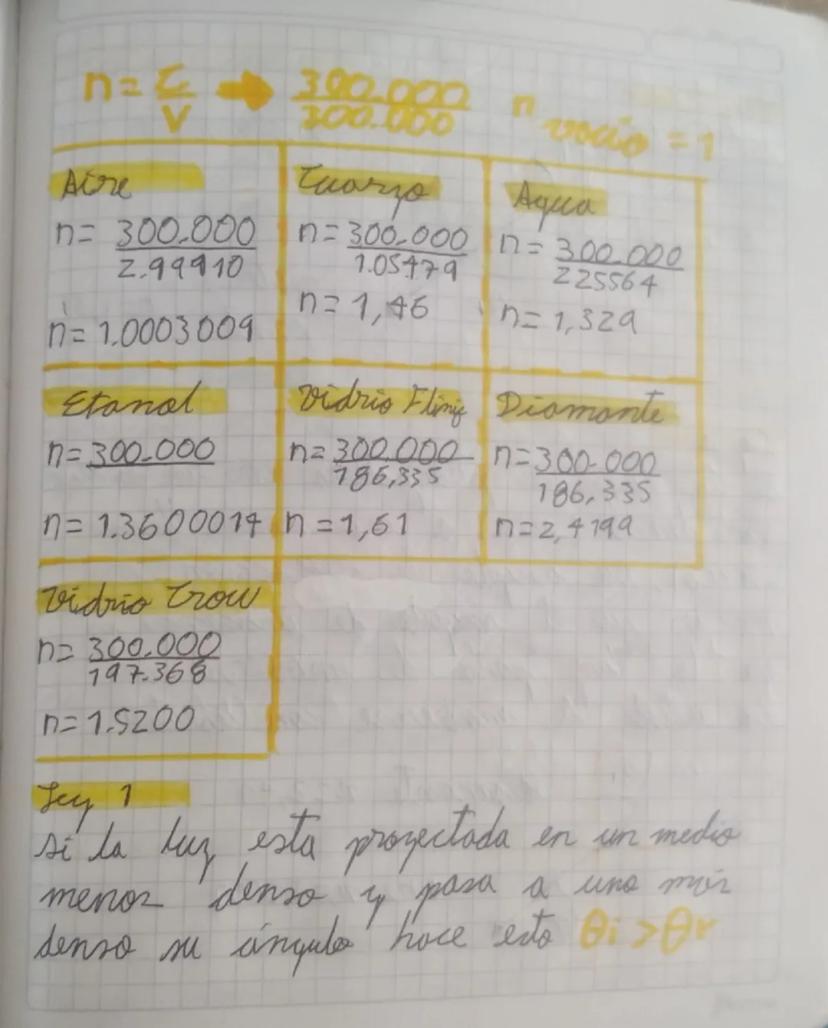 n = c/v → 300.000/300.000 n vacio = 1
Aire
n = 300.000
2.99910
n = 1.0003009
Cuarzo
n = 300.000
1.05479
n = 1,46
Agua
n = 300.000
225564
n = 1,329
Etanol
n = 300.000
n = 1.3600014
Vidrio Flint
n = 300.000
186,335
n = 1,61
Diamante
n = 300.000
186,335
n = 2,4199
Vidrio Crow
n = 300.000
197.368
n = 1.5200
Ley 1
si la luz esta proyectada en un medio
menor denso y pasa a uno más
denso su ángulo hace esto θi > θr